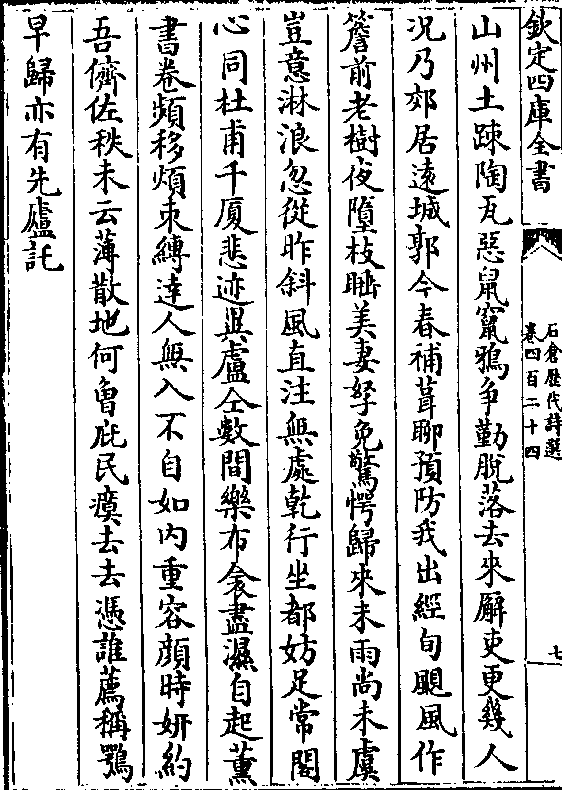 欽定四庫全書
石倉歷代詩選
卷四百二十四
七
山州土疎陶瓦惡鼠竄鴉争勤脫落去來廨吏更幾人
况乃郊居遠城郭今春補葺聊預防我出經旬颶風作
簷前老樹夜墮枝睡美妻孥免驚愕歸來未雨尚未虞
豈意淋浪忽從昨斜風直注無處乾行坐都妨足常閣
心同杜甫千厦悲迹異盧仝數間樂布衾盡濕自起薰
書卷頻移煩束縛達人無入不自如内重容顔時妍約
吾儕佐秩未云薄散地何曾庇民瘼去去憑誰薦稱鶚
早歸亦有先廬託